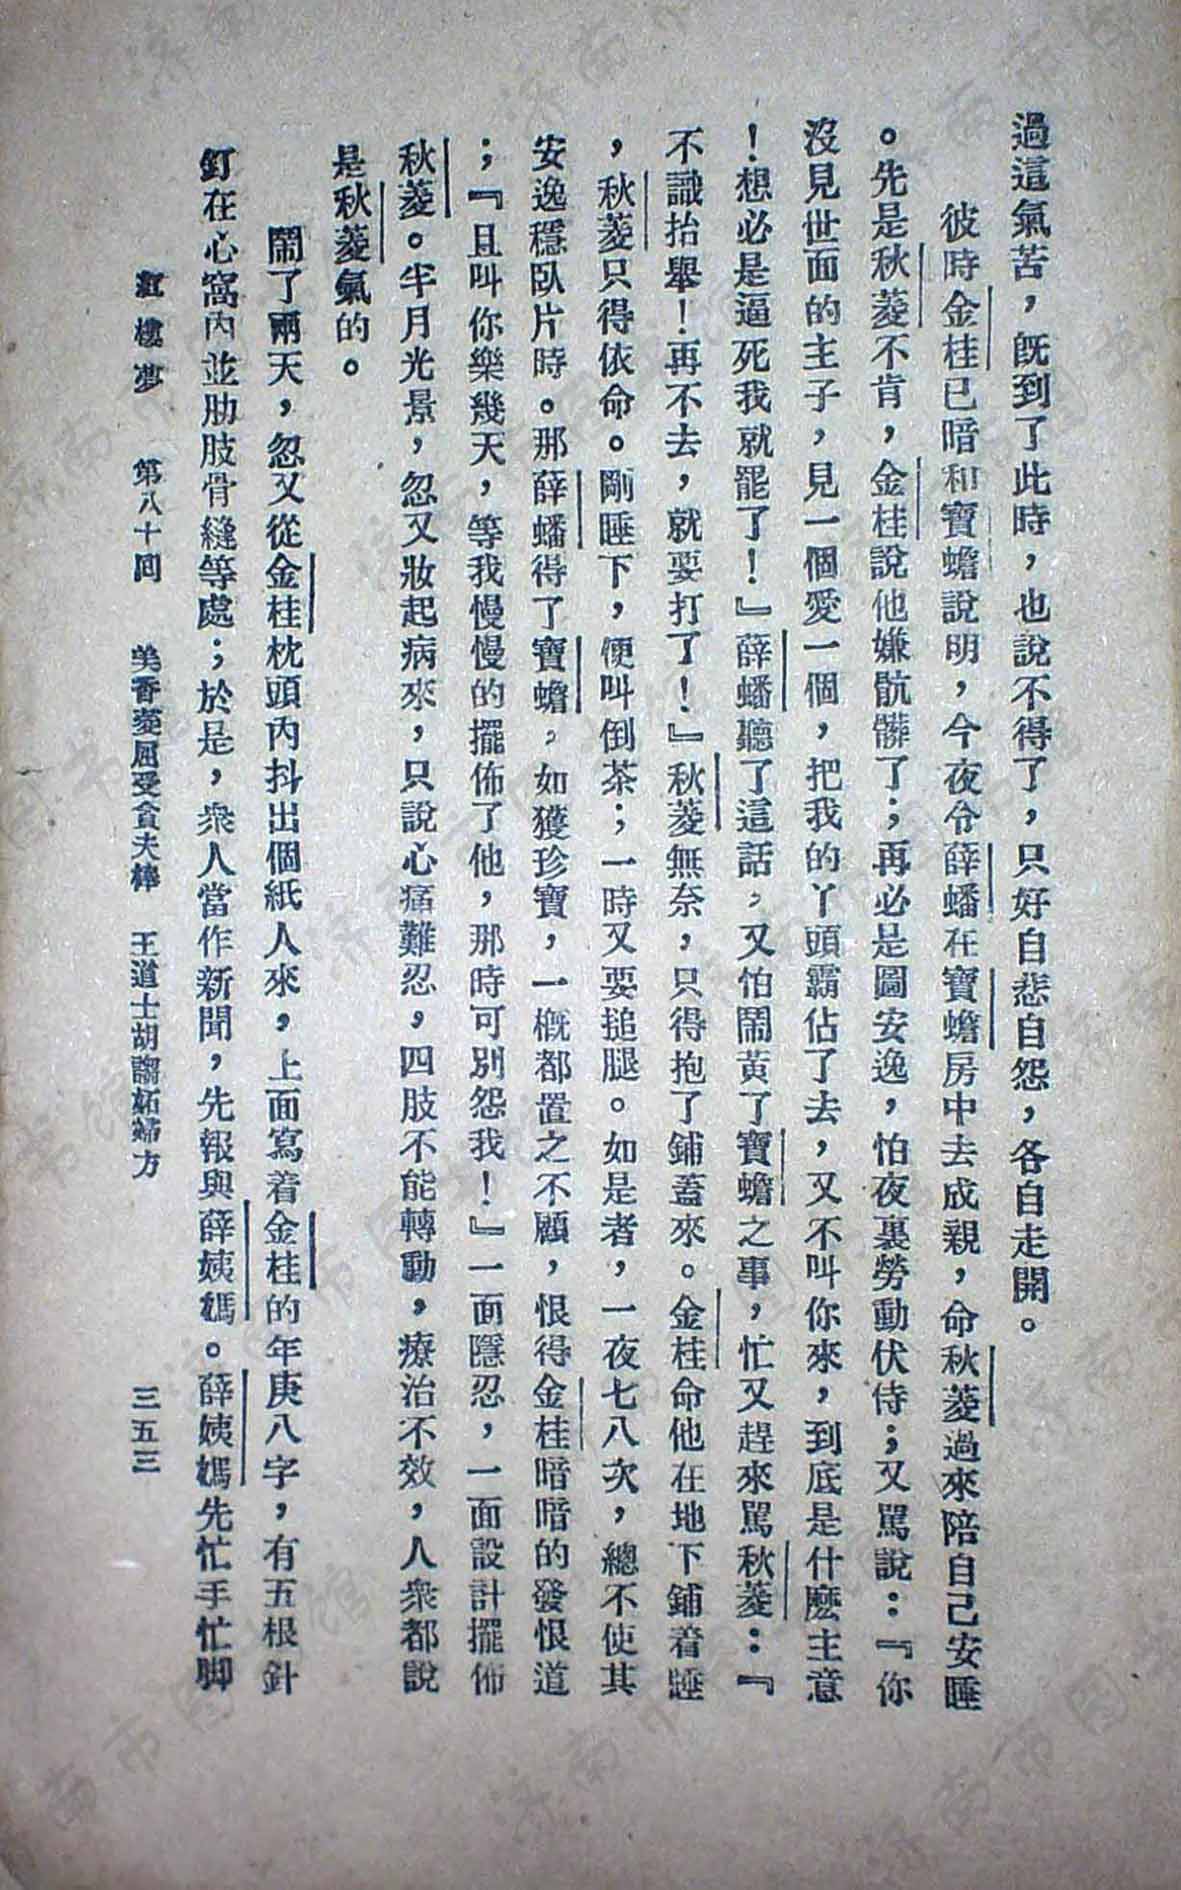 過這氣苦，旣到了此時，也說不得了，只好自悲自怨，各自走開。
彼時金桂已暗和寶蟾說明，今夜令薛蟠在寶蟾房中去成親，命秋菱過來陪自己安睡
。先是秋菱不肯，金桂說他嫌骯髒了；再必是圖安逸，怕夜裏勞動伏侍；又駡說：『你
沒見世面的主子，見一個愛一個，把我的丫頭霸佔了去，又不叫你來，到底是什麽主意
！想必是逼死我就罷了！』薛蟠聽了這話，又怕鬧黃了寶蟾之事，忙又趕來駡秋菱：『
不識抬舉！再不去，就要打了！』秋菱無奈，只得抱了鋪蓋來。金桂命他在地下鋪着睡
，秋菱只得依命。剛睡下，便叫倒茶；一時又要搥腿。如是者，一夜七八次，總不使其
安逸穩臥片時。那薛蟠得了寶蟾，如獲珍寶，一槪都置之不顧，恨得金桂暗暗的發恨道
；『且叫你樂幾天，等我慢慢的擺佈了他，那時可別怨我！』一面隱忍，一面設計擺佈
秋菱。半月光景，忽又妝起病來，只說心痛難忍，四肢不能轉動，療治不效，人衆都說
是秋菱氣的。
鬧了兩天，忽又從金桂枕頭內抖出個紙人來，上面寫着金桂的年庚八字，有五根針
釘在心窩內並肋肢骨縫等處；於是，衆人當作新聞，先報與薛姨媽。薛姨媽先忙手忙脚
紅樓夢 第八十回 美香菱屈受貪夫棒 王道士胡謅妬婦方 三五三